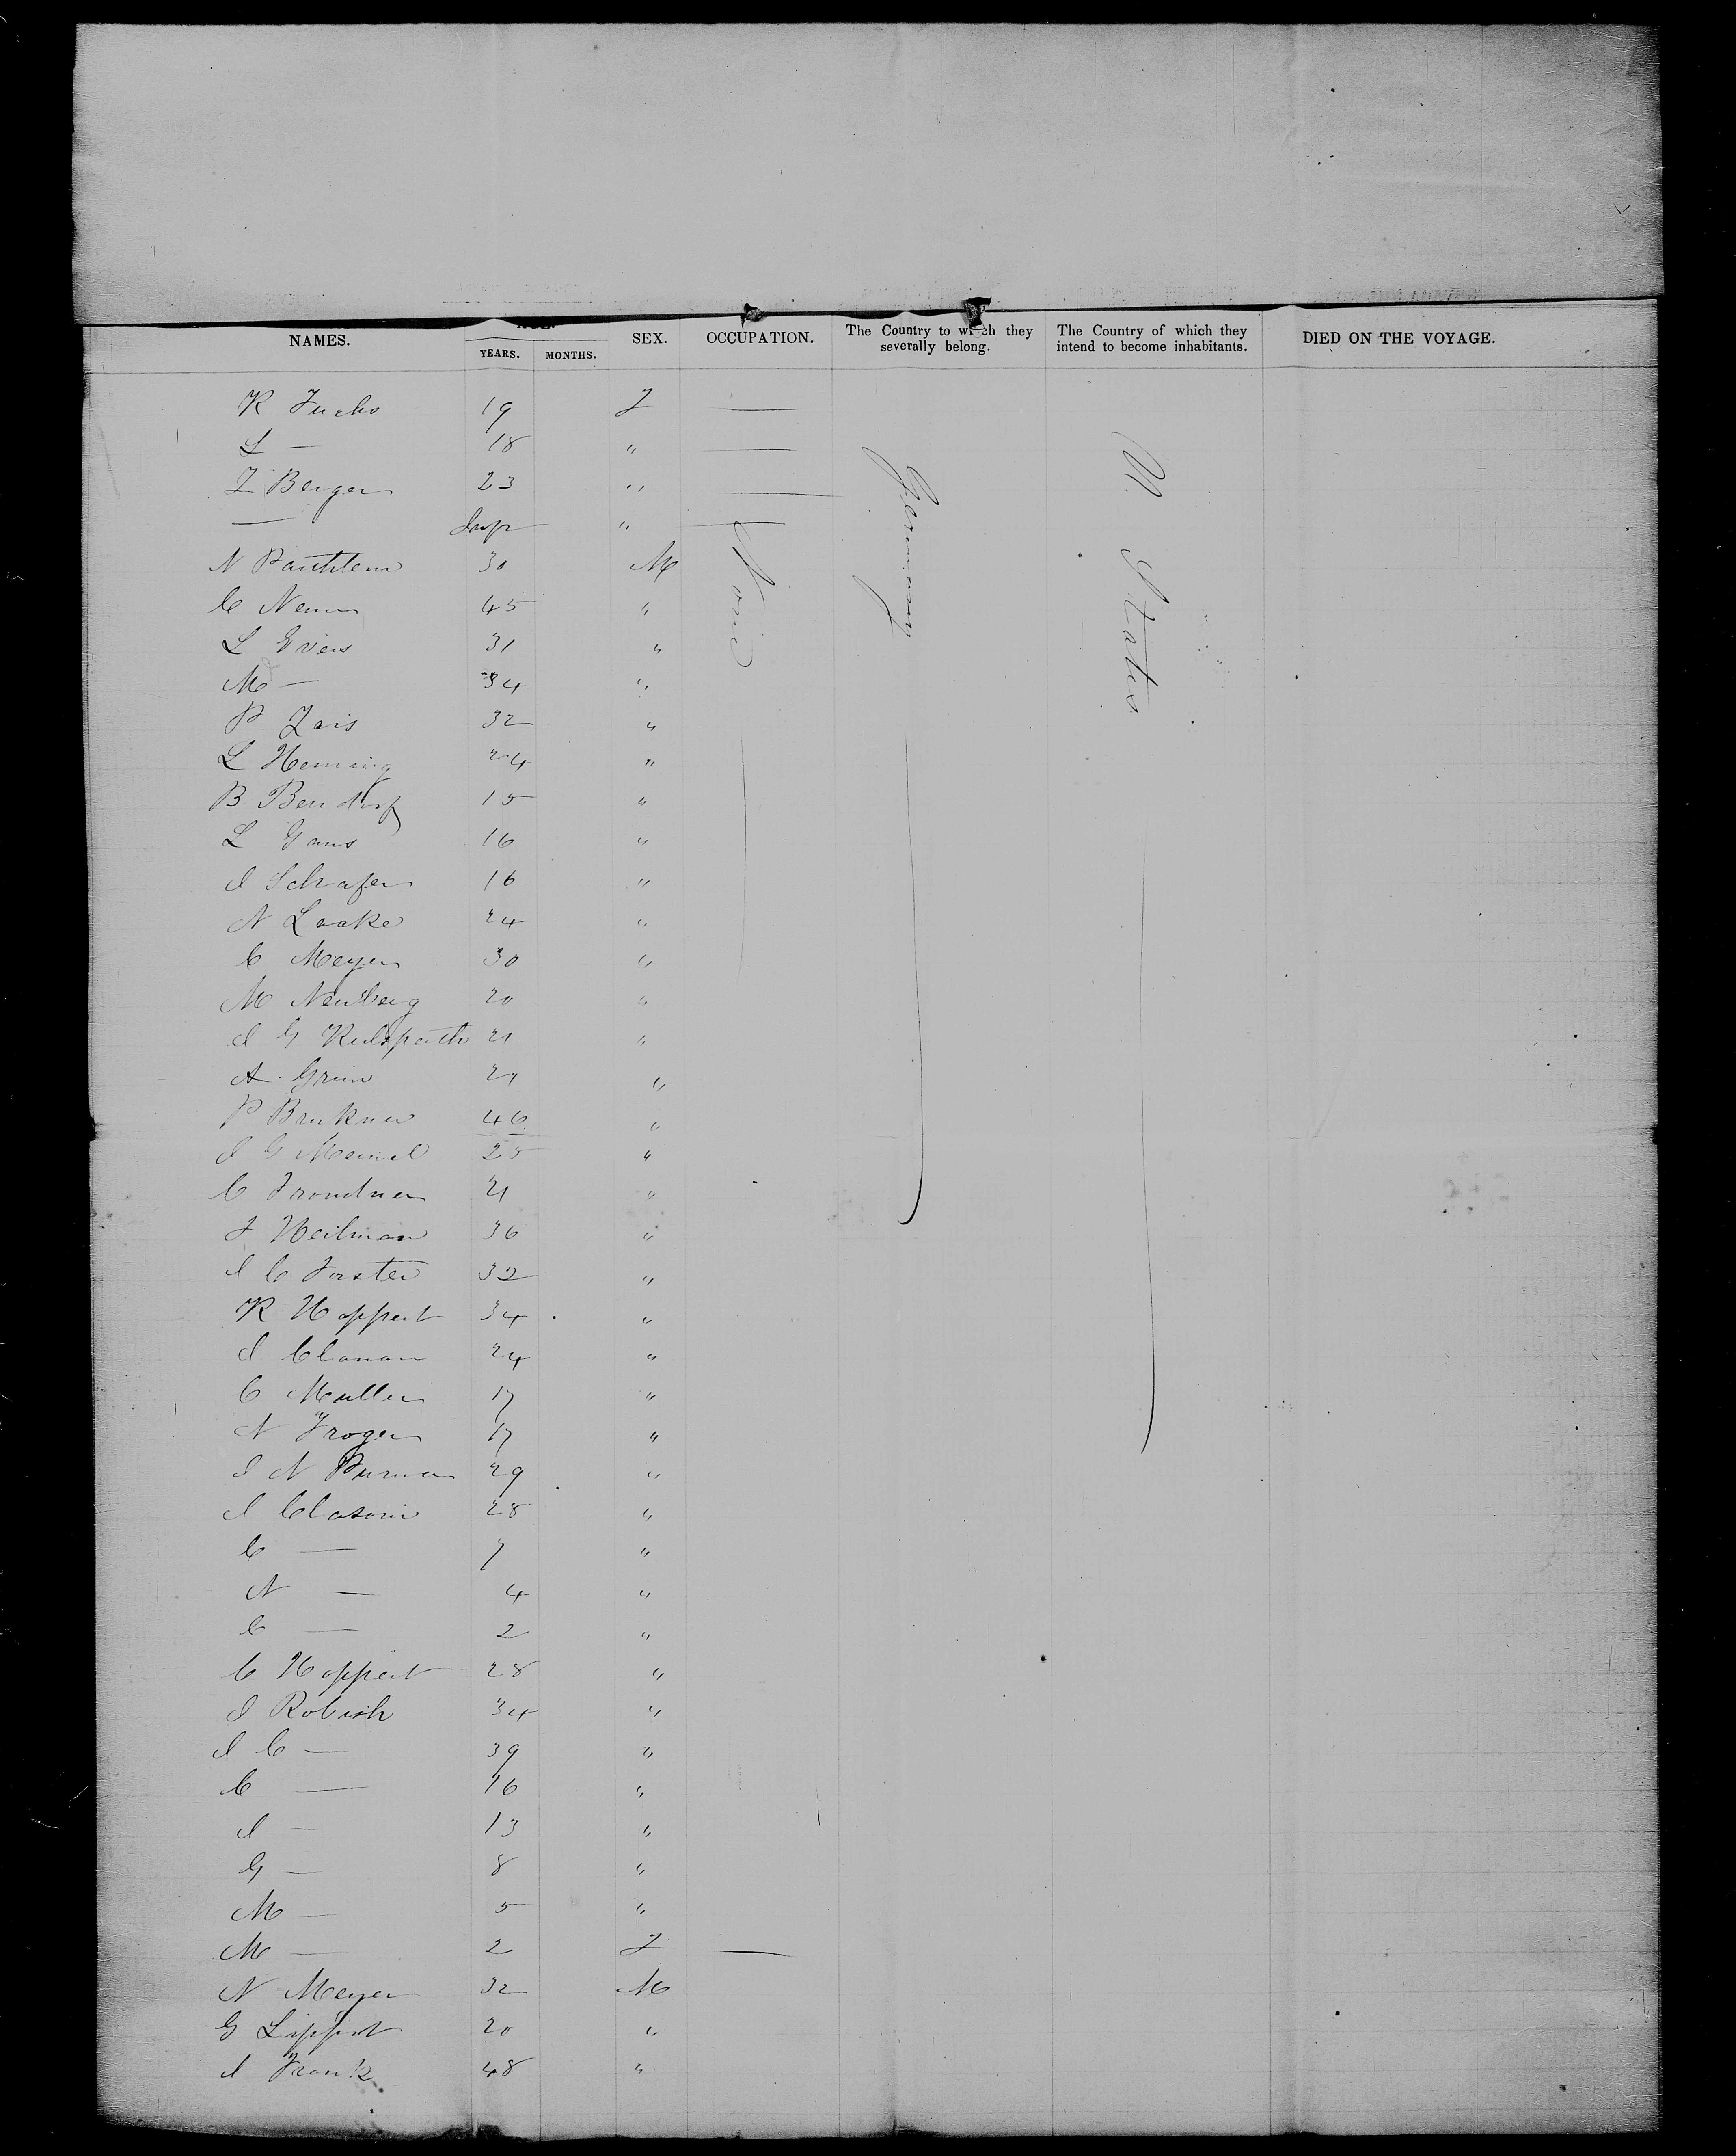 NAMES. YEARS. MONTHS. SEX. OCCUPATION. The Country to which they severally belong. The Country of which they intend to become inhabitants. DIED ON THE VOYAGE.
K Fuchs 19 F —
L — 18 " —
Z Berger 23 " —
— Inf " —
N 30 M None Germany U. States
C 45 "
L 31 "
M — 34 "
P Zais 32 "
L Henning 24 "
B Bendorf 15 "
L Gans 16 "
J Schafer 16 "
N Laake 24 "
C Meyer 30 "
M Neuberg 20 "
J G 21 "
A. Grim 21 "
P Brukner 46 "
J G Meinel 25 "
C 21 "
J Heilman 36 "
J C Forster 32 "
K Hoppert 34 "
J 24 "
C Muller 17 "
N Froger 17 "
J N 29 "
J 28 "
C — 7 "
N — 4 "
C — 2 "
C Hoppert 28 "
J Robish 34 "
J C — 39 "
C — 16 "
J — 13 "
G — 8 "
M — 5 "
M — 2 F —
N Meyer 32 M
G Lippert 20 "
J Frank 48 "